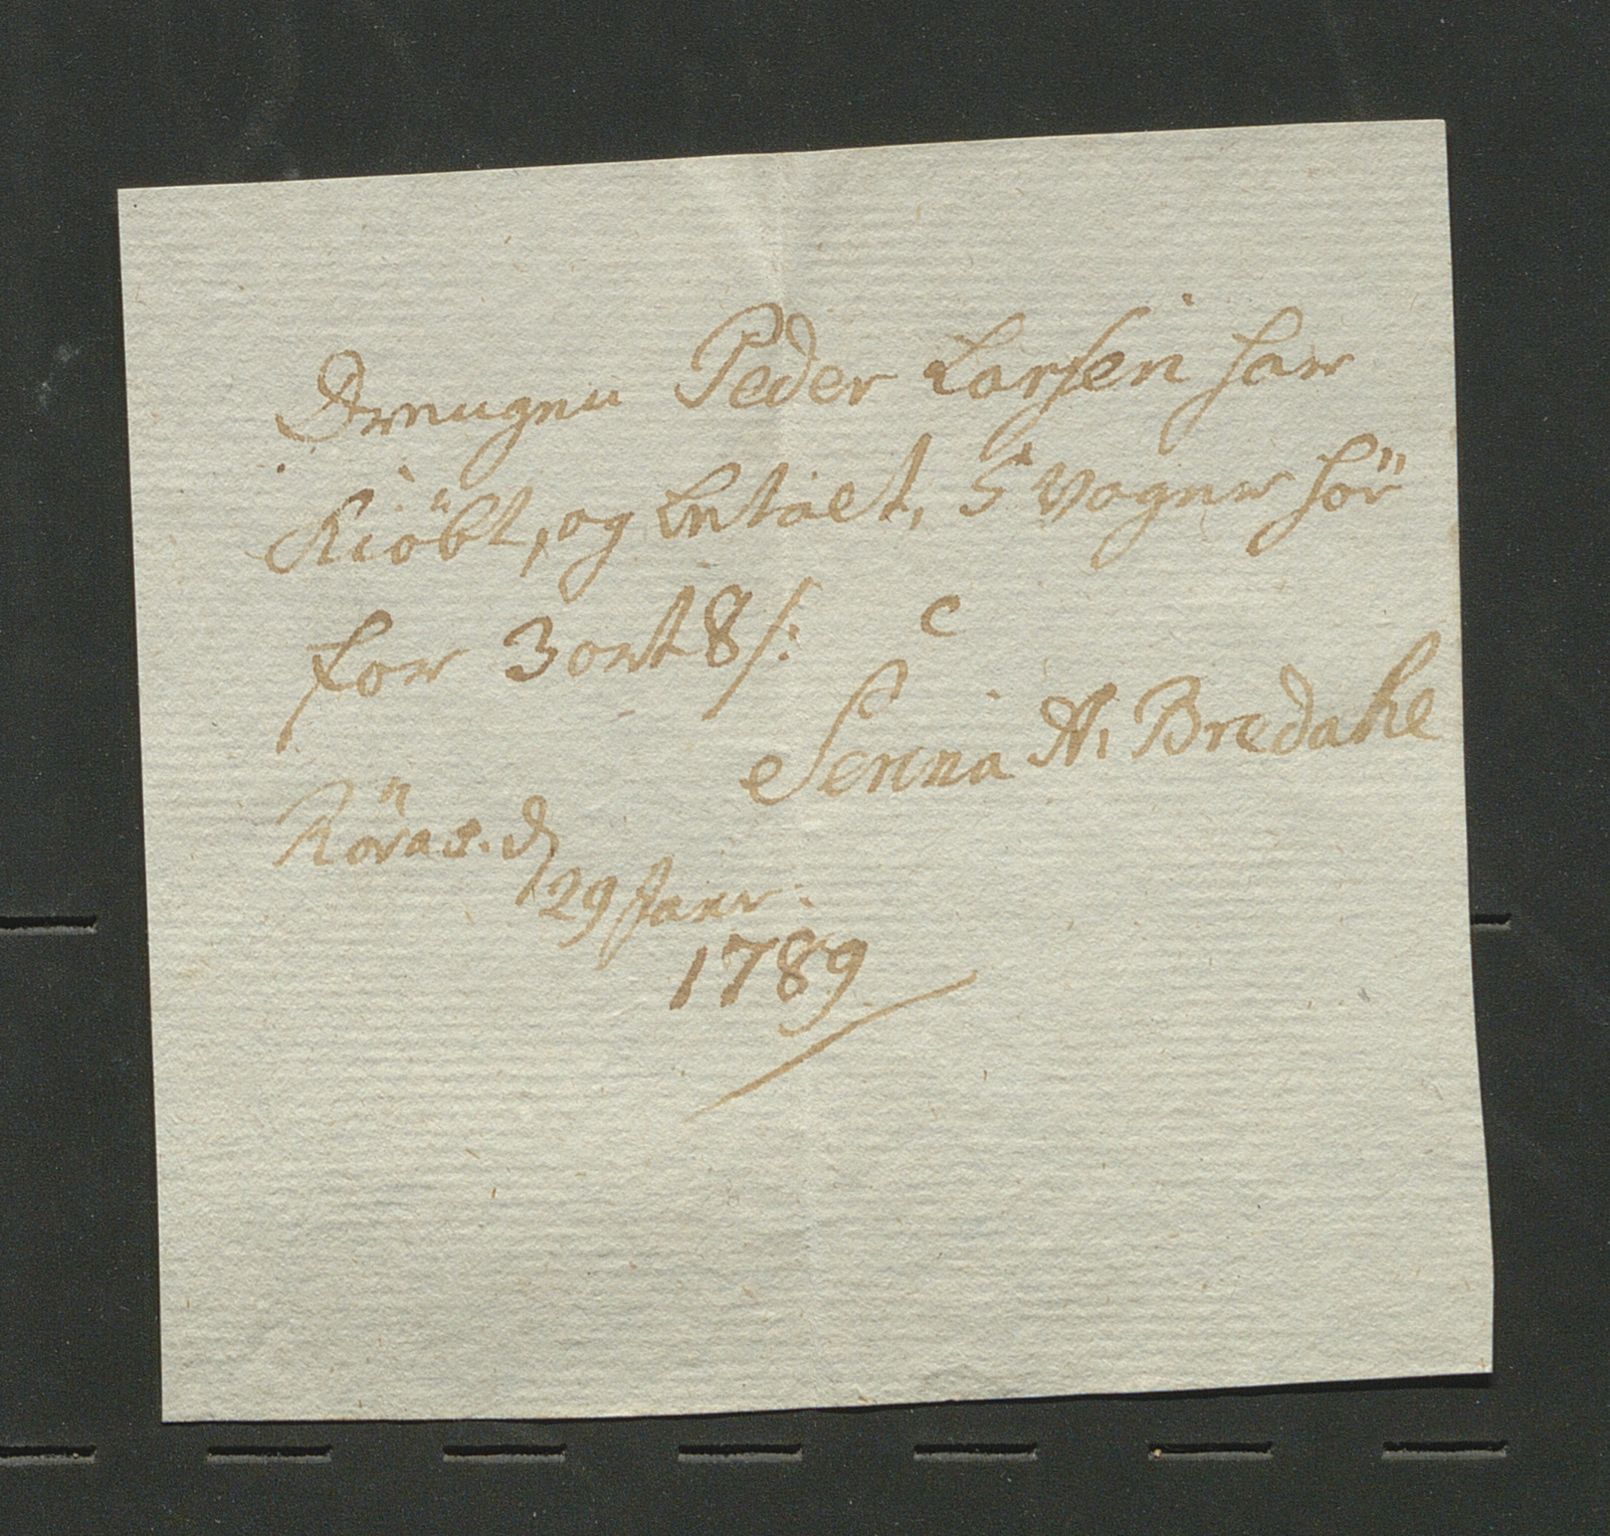 Drengen Peder Larsen har
Kiöbt, og betalt, 5 Voger hör
for 3 ort 8 s:
Senna A. Bredahl
Röraas. d
29 Janr:
1789